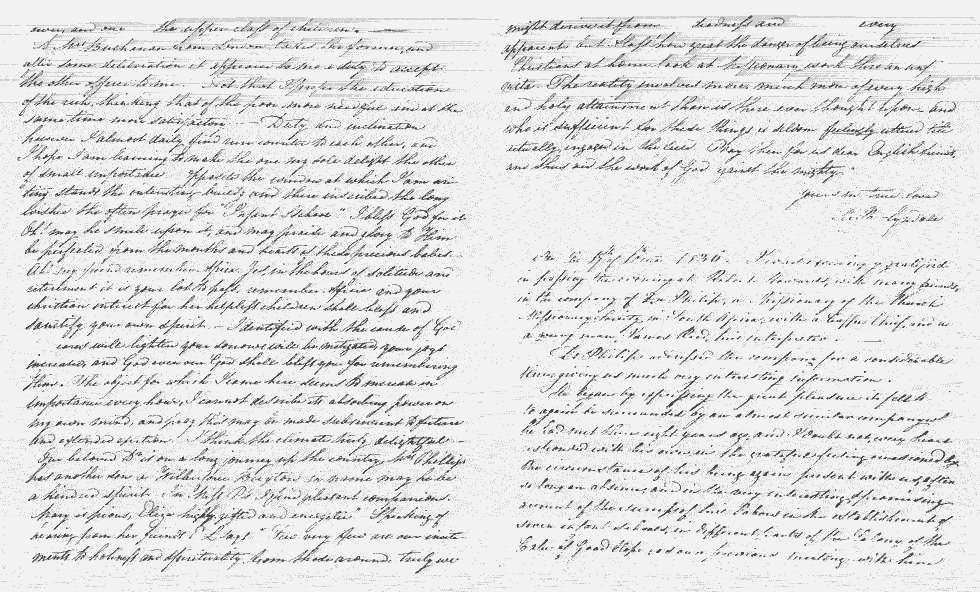 over, and one the upper class of children.
A Mrs Buchanan from London takes the former, and
after some deliberation it appears to me a duty to accept
the other offered to me. Not that I prefer the education
of the rich, thinking that of the poor more needful and at the
same time more satisfactory. Duty and inclination
however I almost daily find run counter to each other, and
I hope I am learning to make the one my sole delight the other
of small importance. Opposite the window at which I am wri
ting stands the interesting building and there inscribed the long
wished the often prayer for "Infant School". I bless God for it
Oh! may he smile upon it, and may praise and glory to Him
be perfected from the mouths and hearts of these precious babes.
Ah! my friend remember Africa. Yes, in the hours of solitude and
retirement it is your lot to pass, remember Africa and your
christian interest for her helpless children shall bless and
sanctify your own spirit. Identified with the cause of God
cares will lighten your sorrows will be mitigated your joys
increased, and God even our God shall bless you for remembering
them. The object for which I came here seems to increase in
importance every hour, I cannot describe its absorbing power on
my own mind, and pray this may be made subservient to future
and extended exertion. I think the climate truly delightful
Our beloved Dr is on a long journey up the country, Mrs Phillips
has another son a Wilberforce Buxton in name may he be
a kindred spirit. in Miss P's I find pleasant companions.
Mary is pious, Eliza highly gifted and energetic" Speaking of
hearing from her friends E. L. says "Few very few are our excite
ments to holiness and spirituality, from those around, truly we
might derive it from deadness and every
apparent but Alas! how great the danger of being ourselves
Christians at home look at Missionary work thro' an
The reality involves more, much more of very high
and holy attainment than is there ever thought upon, and
who is sufficient for these things is seldom feelingly uttered till
actually engaged in the lives. Pray then for us dear English friends,
and thus aid the work of God against the mighty."
yours in true love

On the 15th of 1836. I was exceedingly gratified
in passing the evening at Robert Howards, with many friends,
in the company of Dr Philip, a Missionary of the Church
Missionary Society, in South Africa, with a Caffre Chief, and a
a young man, James Read, his interpreter.
Dr Philip addressed the company for a considerable
time, giving us much very interesting information.
He began by expressing the great pleasure it felt to
to again be surrounded by an almost similar company as
he had met there eight years ago, and I doubt not, every heart
responded with his own in the grateful feeling occasioned by
the circumstance of his being again present with us after
so long an absence, and in the very interesting & promising
account of the success of his labours in the establishment of
seven infant schools, in different parts of the Colony at the
Cape of Good Hope